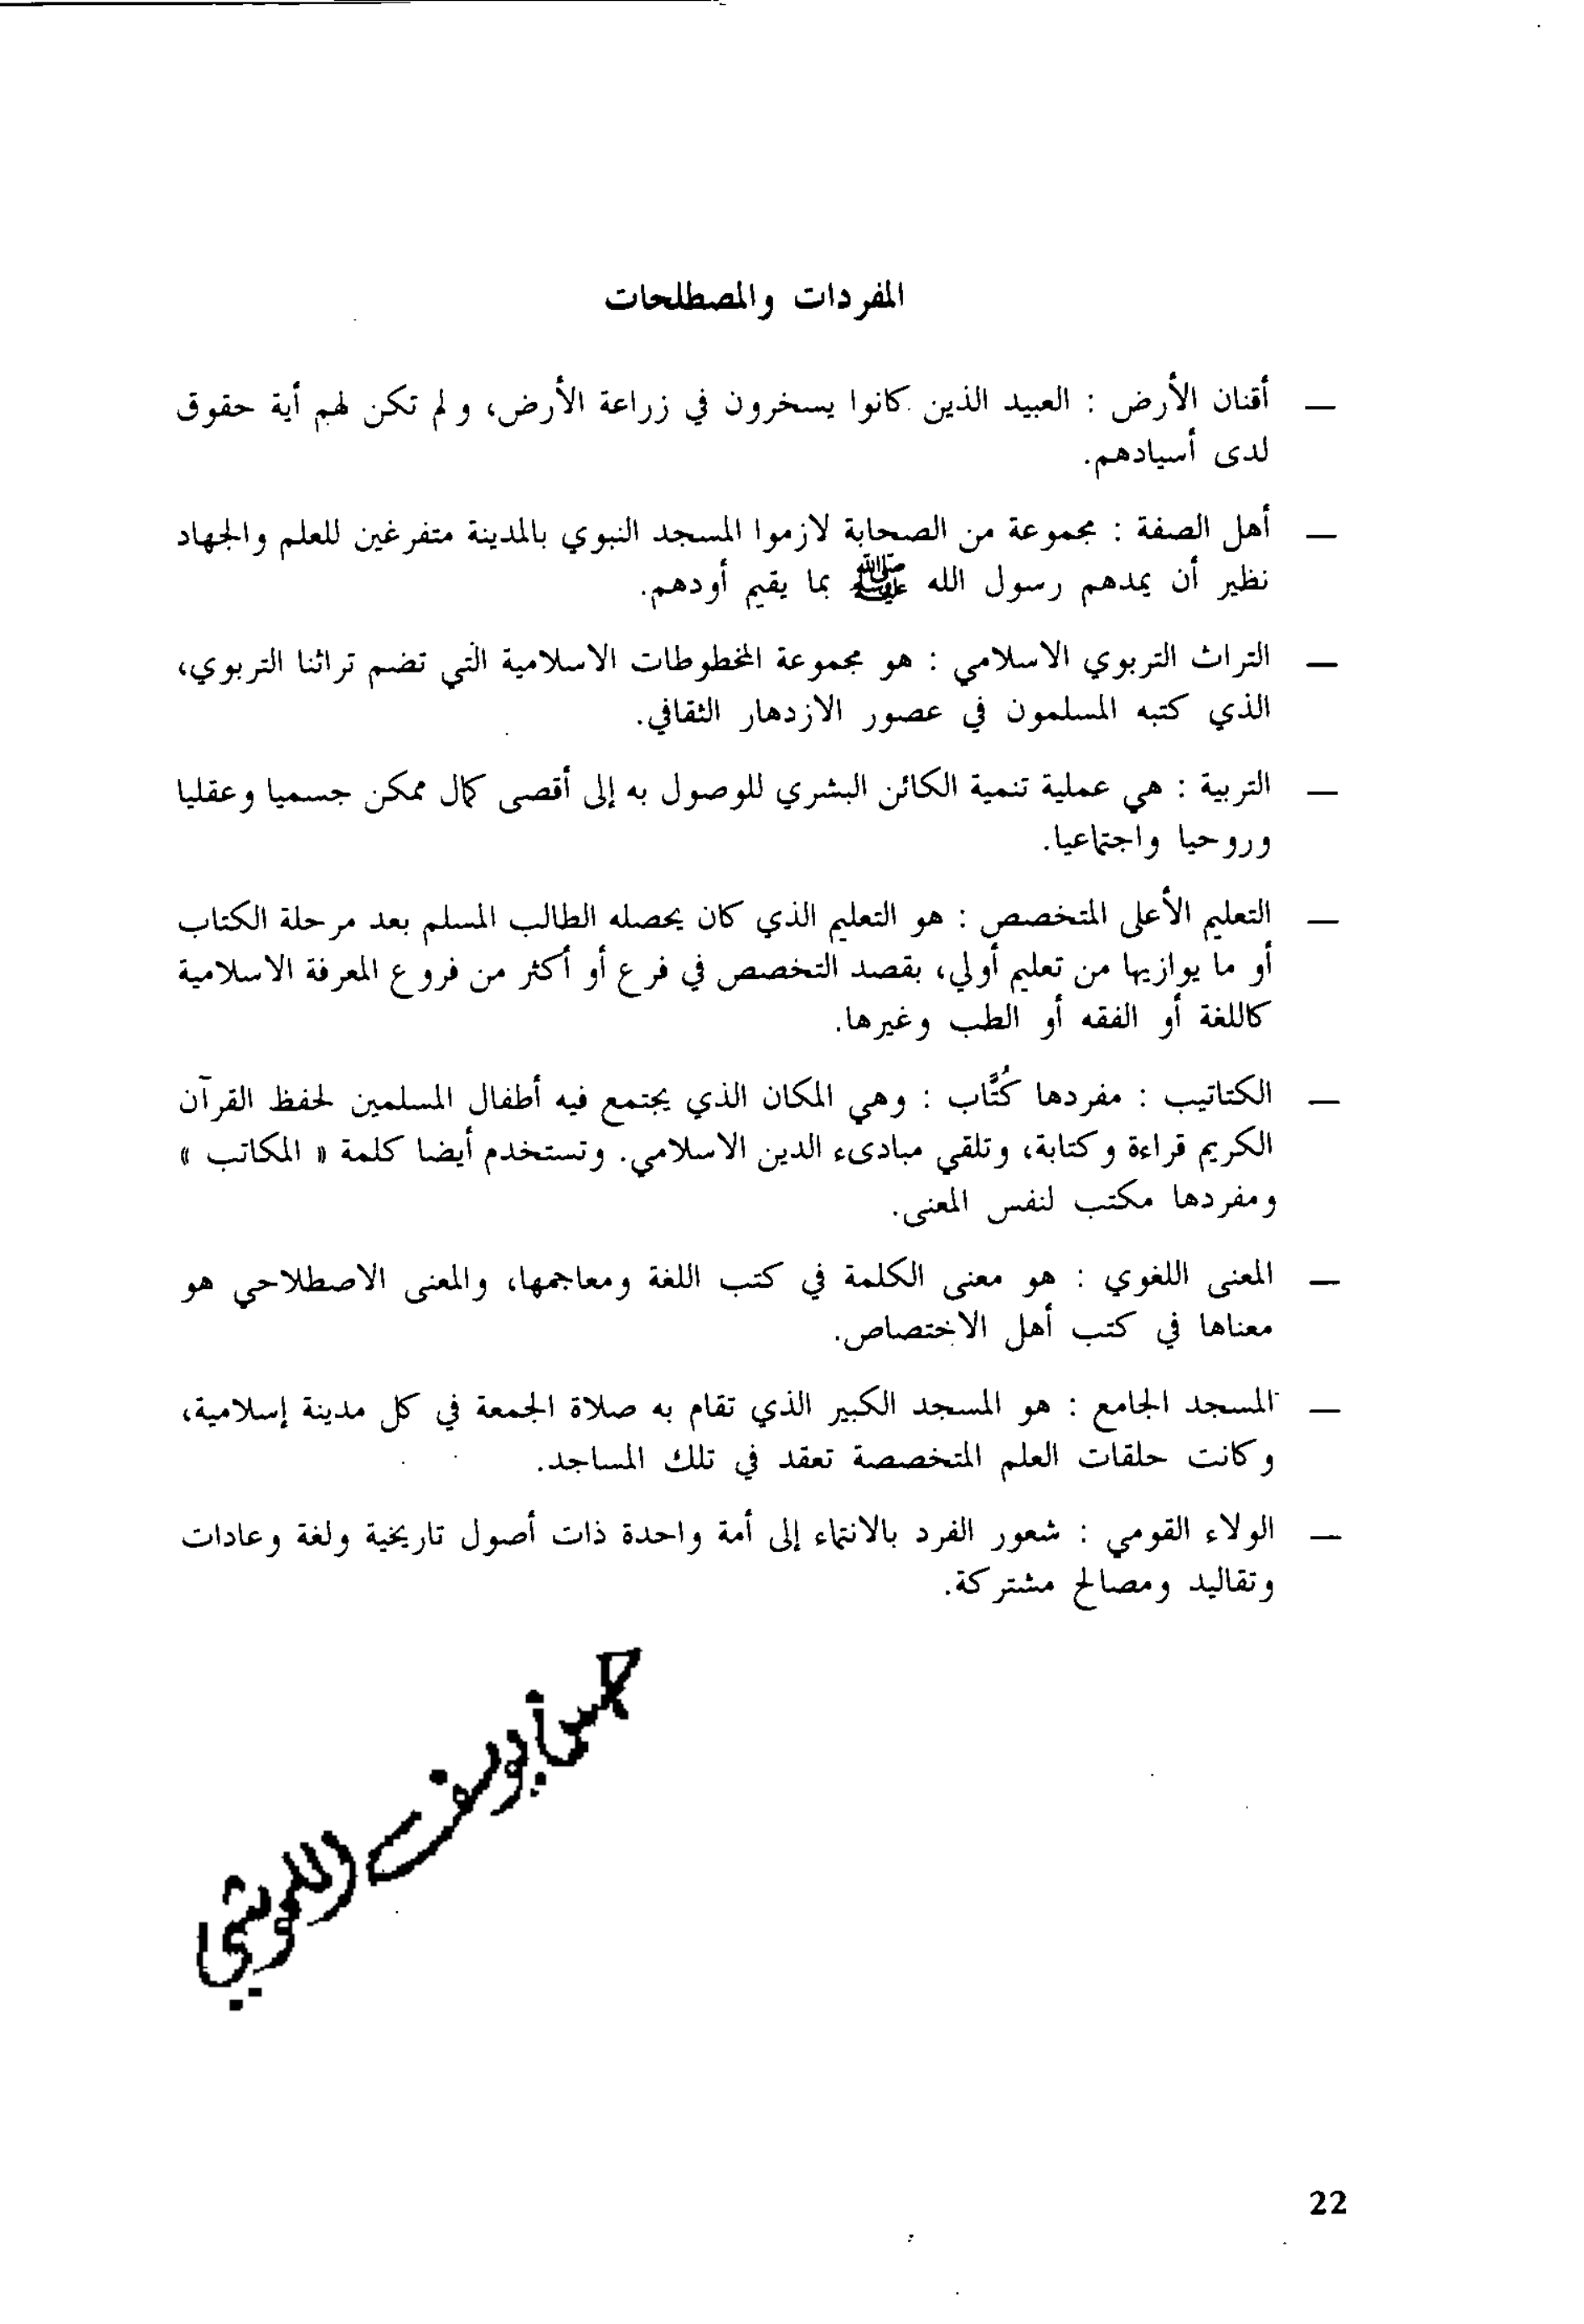 المفردات والمصطلحات
— أقنان الأرض : العبيد الذين كانوا يسخرون في زراعة الأرض، ولم تكن لهم أية حقوق
لدى أسيادهم.
— أهل الصفة : مجموعة من الصحابة لازموا المسجد النبوي بالمدينة متفرغين للعلم والجهاد
نظير أن يمدهم رسول الله ﷺ بما يقيم أودهم.
— التراث التربوي الاسلامي : هو مجموعة المخطوطات الاسلامية التي تضم تراثنا التربوي،
الذي كتبه المسلمون في عصور الازدهار الثقافي.
— التربية : هي عملية تنمية الكائن البشري للوصول به إلى أقصى كمال ممكن جسميا وعقليا
وروحيا واجتماعيا.
— التعليم الأعلى المتخصص : هو التعليم الذي كان يحصله الطالب المسلم بعد مرحلة الكتاب
أو ما يوازيها من تعليم أولي، بقصد التخصص في فرع أو أكثر من فروع المعرفة الاسلامية
كاللغة أو الفقه أو الطب وغيرها.
— الكتاتيب : مفردها كُتَّاب : وهي المكان الذي يجتمع فيه أطفال المسلمين لحفظ القرآن
الكريم قراءة وكتابة، وتلقي مبادىء الدين الاسلامي. وتستخدم أيضا كلمة « المكاتب »
ومفردها مكتب لنفس المعنى.
— المعنى اللغوي : هو معنى الكلمة في كتب اللغة ومعاجمها، والمعنى الاصطلاحي هو
معناها في كتب أهل الاختصاص.
— المسجد الجامع : هو المسجد الكبير الذي تقام به صلاة الجمعة في كل مدينة إسلامية،
وكانت حلقات العلم المتخصصة تعقد في تلك المساجد.
— الولاء القومي : شعور الفرد بالانتماء إلى أمة واحدة ذات أصول تاريخية ولغة وعادات
وتقاليد ومصالح مشتركة.
22